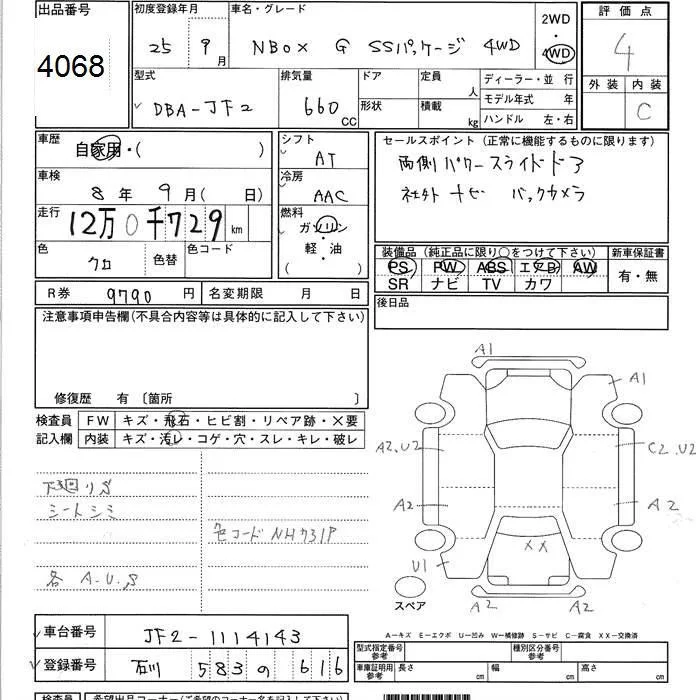 出品番号
4068
初度登録年月
25 9月
車名・グレード
NBOX G SSパッケージ 4WD
2WD
4WD
評価点
4
外装 内装
C
型式
DBA-JF2
排気量
660 CC
ドア
形状
定員 人
積載 kg
ディーラー・並 行
モデル年式 年
ハンドル 左・右
車歴
自家用・( )
シフト
AT
セールスポイント (正常に機能するものに限ります)
両側パワースライドドア
社外ナビ バックカメラ
車検
8年 9月( 日)
冷房
AAC
走行
12万0千729km
燃料
ガソリン
・
軽・油
( )
色
クロ
色替
色コード
装備品 (純正品に限り○をつけて下さい)
PS PW ABS エアB AW
SR ナビ TV カワ
新車保証書
有・無
R券 9790円
名変期限 月 日
後日品
注意事項申告欄(不具合内容等は具体的に記入して下さい)
修復歴 有 〔箇所 〕
検査員
記入欄
FW キズ・飛石・ヒビ割・リペア跡・X要
内装 キズ・汚レ・コゲ・穴・スレ・キレ・破レ
下廻りS
シートシミ
色コードNH731P
各 A.U.S
A1
A1
A2.U2
C2.U2
A2
A2
XX
U1
A2
A2
スペア
A―キズ E―エクボ U―凹み W―補修跡 S―サビ C―腐食 XX―交換済
車台番号
JF2-1114143
登録番号
石川 583 の 616
型式指定番号
参考
種別区分番号
参考
車庫証明用
参考
長さ cm
幅 cm
高さ cm
検査員
希望出品コーナー(ご希望のコーナー名を記入して下さい)